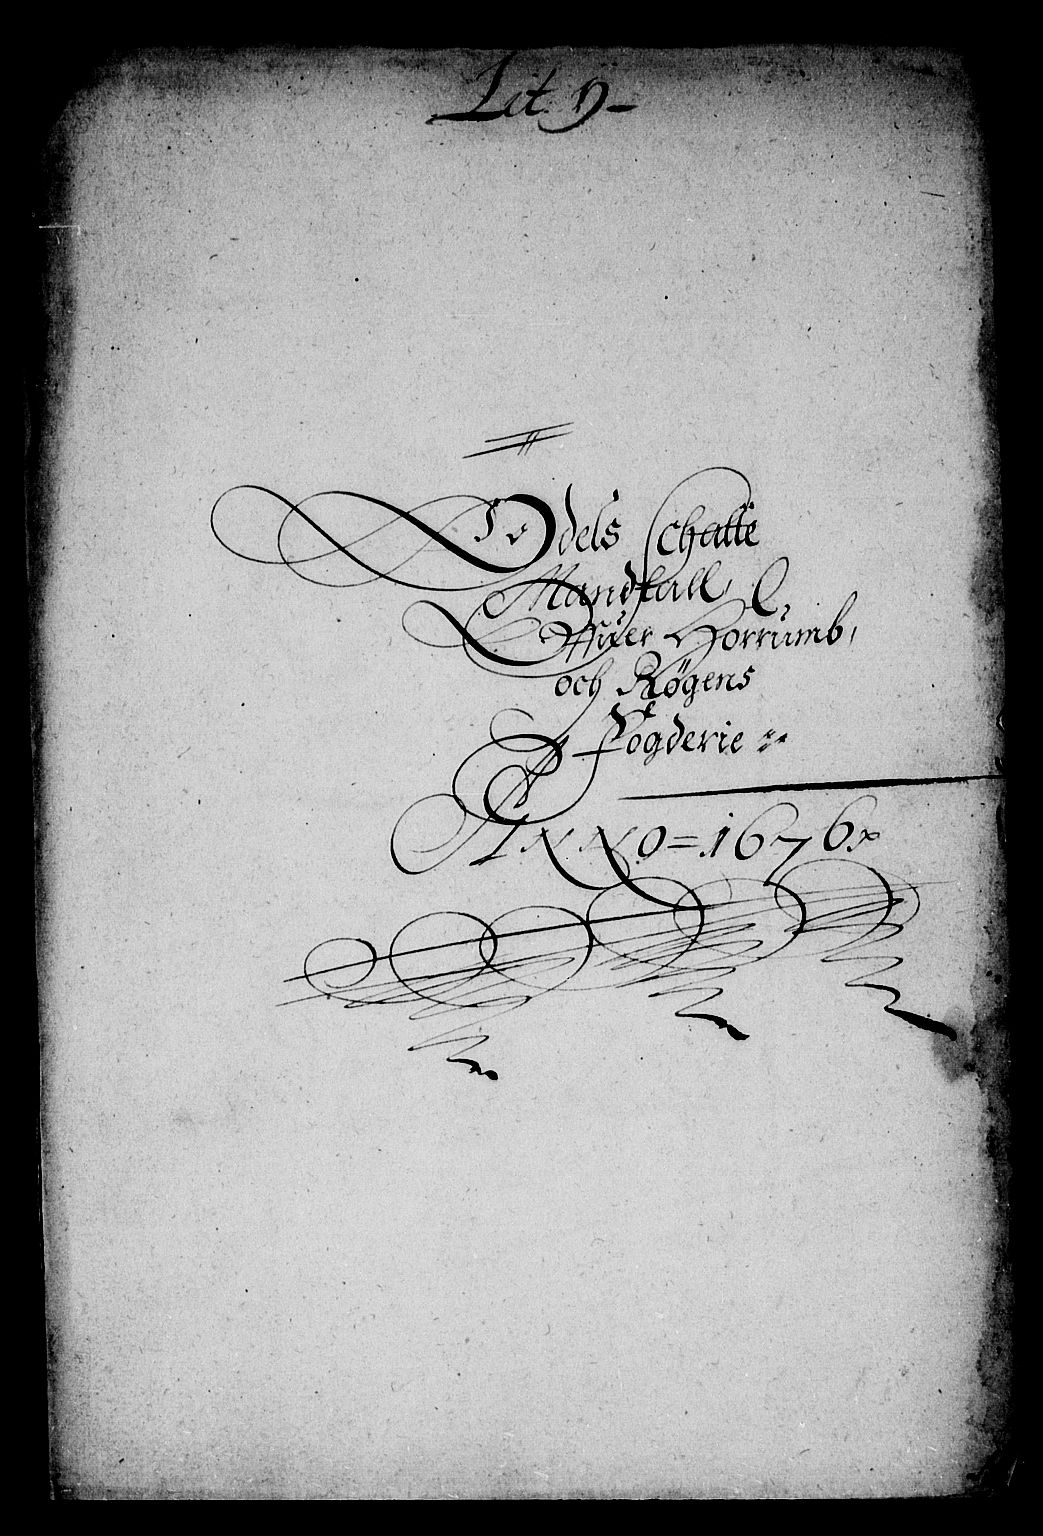 Lit. D
Odels Schatte
Mandtall
Offuer Horrumb,
och Røgens
Fogderie
ANNO = 1676